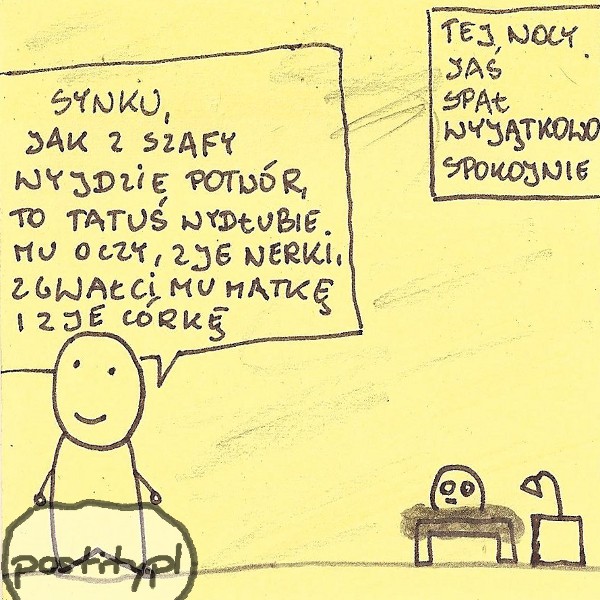 SYNKU,
JAK Z SZAFY
WYJDZIĘ POTWÓR,
TO TATUŚ WYDŁUBIE
MU OCZY, ZJE NERKI,
ZGWAŁCI MU MATKĘ
I ZJE CÓRKĘ
TEJ NOCY
JAŚ
SPAŁ
WYJĄTKOWO
SPOKOJNIE
postity.pl